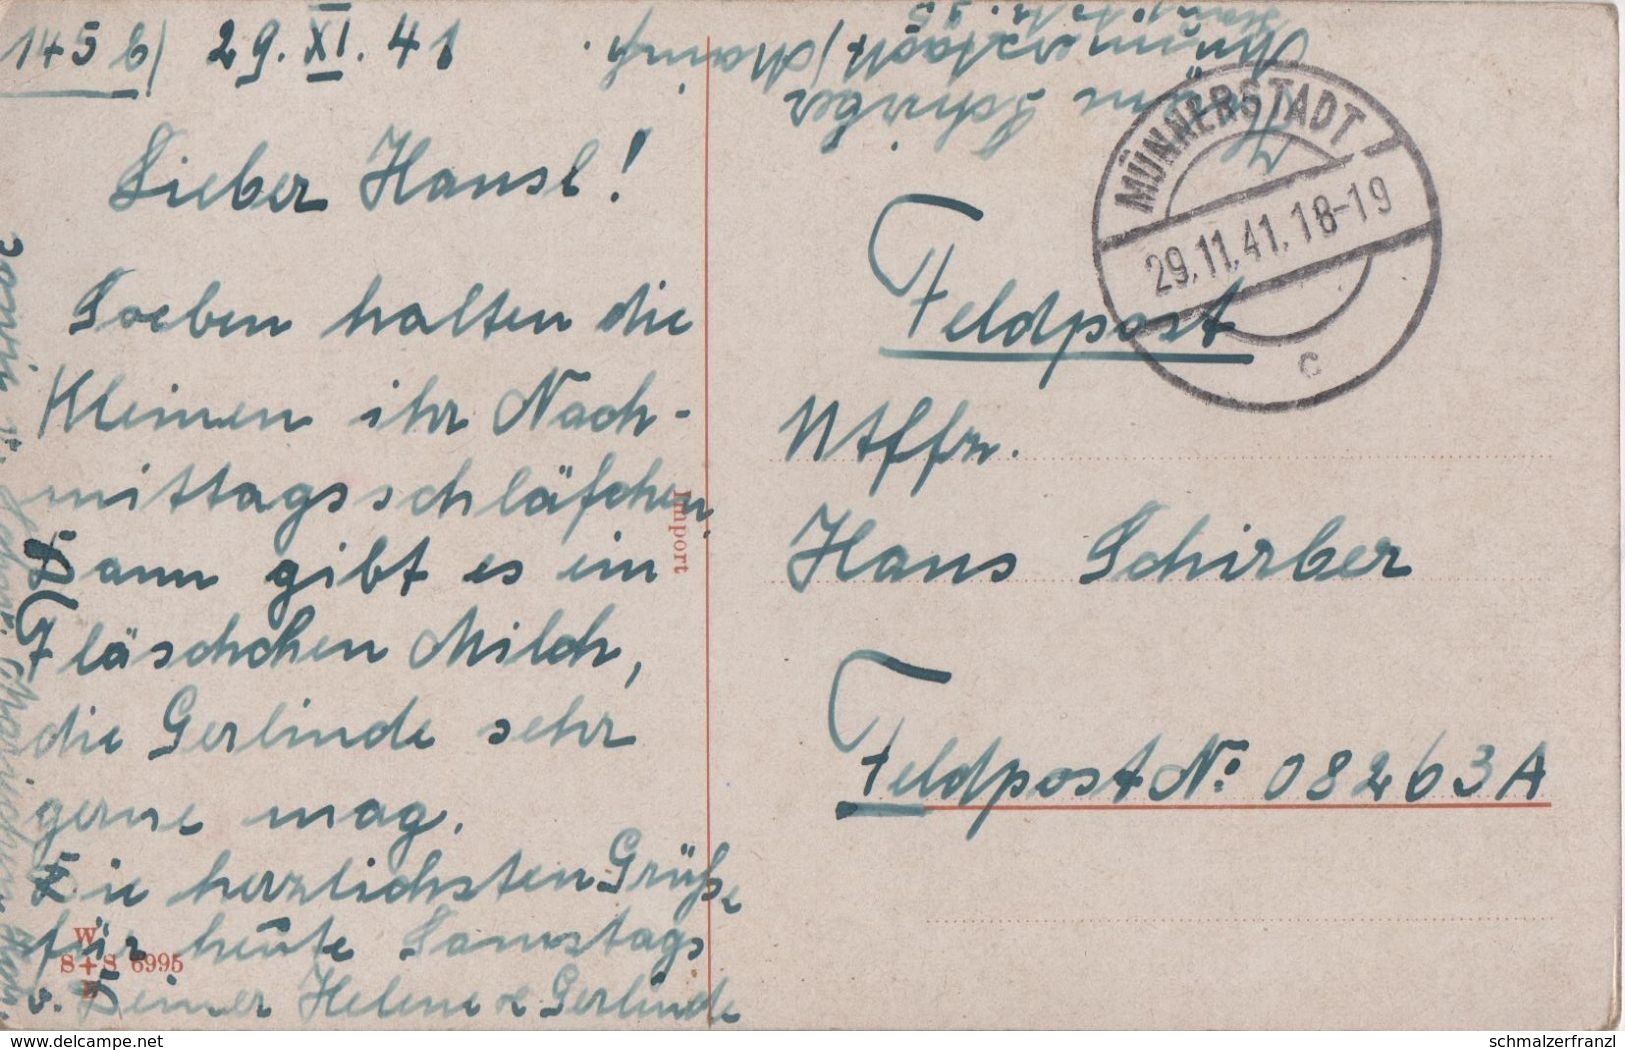 145 b) 29. XI. 41
Lieber Hansl!
Soeben halten die
Kleinen ihr Nach-
mittagsschläfchen.
Dann gibt es ein
Fläschchen Milch,
die Gerlinde sehr
gerne mag.
Die herzlichsten Grüße
für heute Samstags
v. Deiner Helene & Gerlinde
Schirber
Münnerstadt / Mainfr.
MÜNNERSTADT
29.11.41.18-19
c
Feldpost
Utffz.
Hans Schirber
Feldpost No. 08263A
Import
W
S+S 6995
schmalzerfranzl
www.delcampe.net